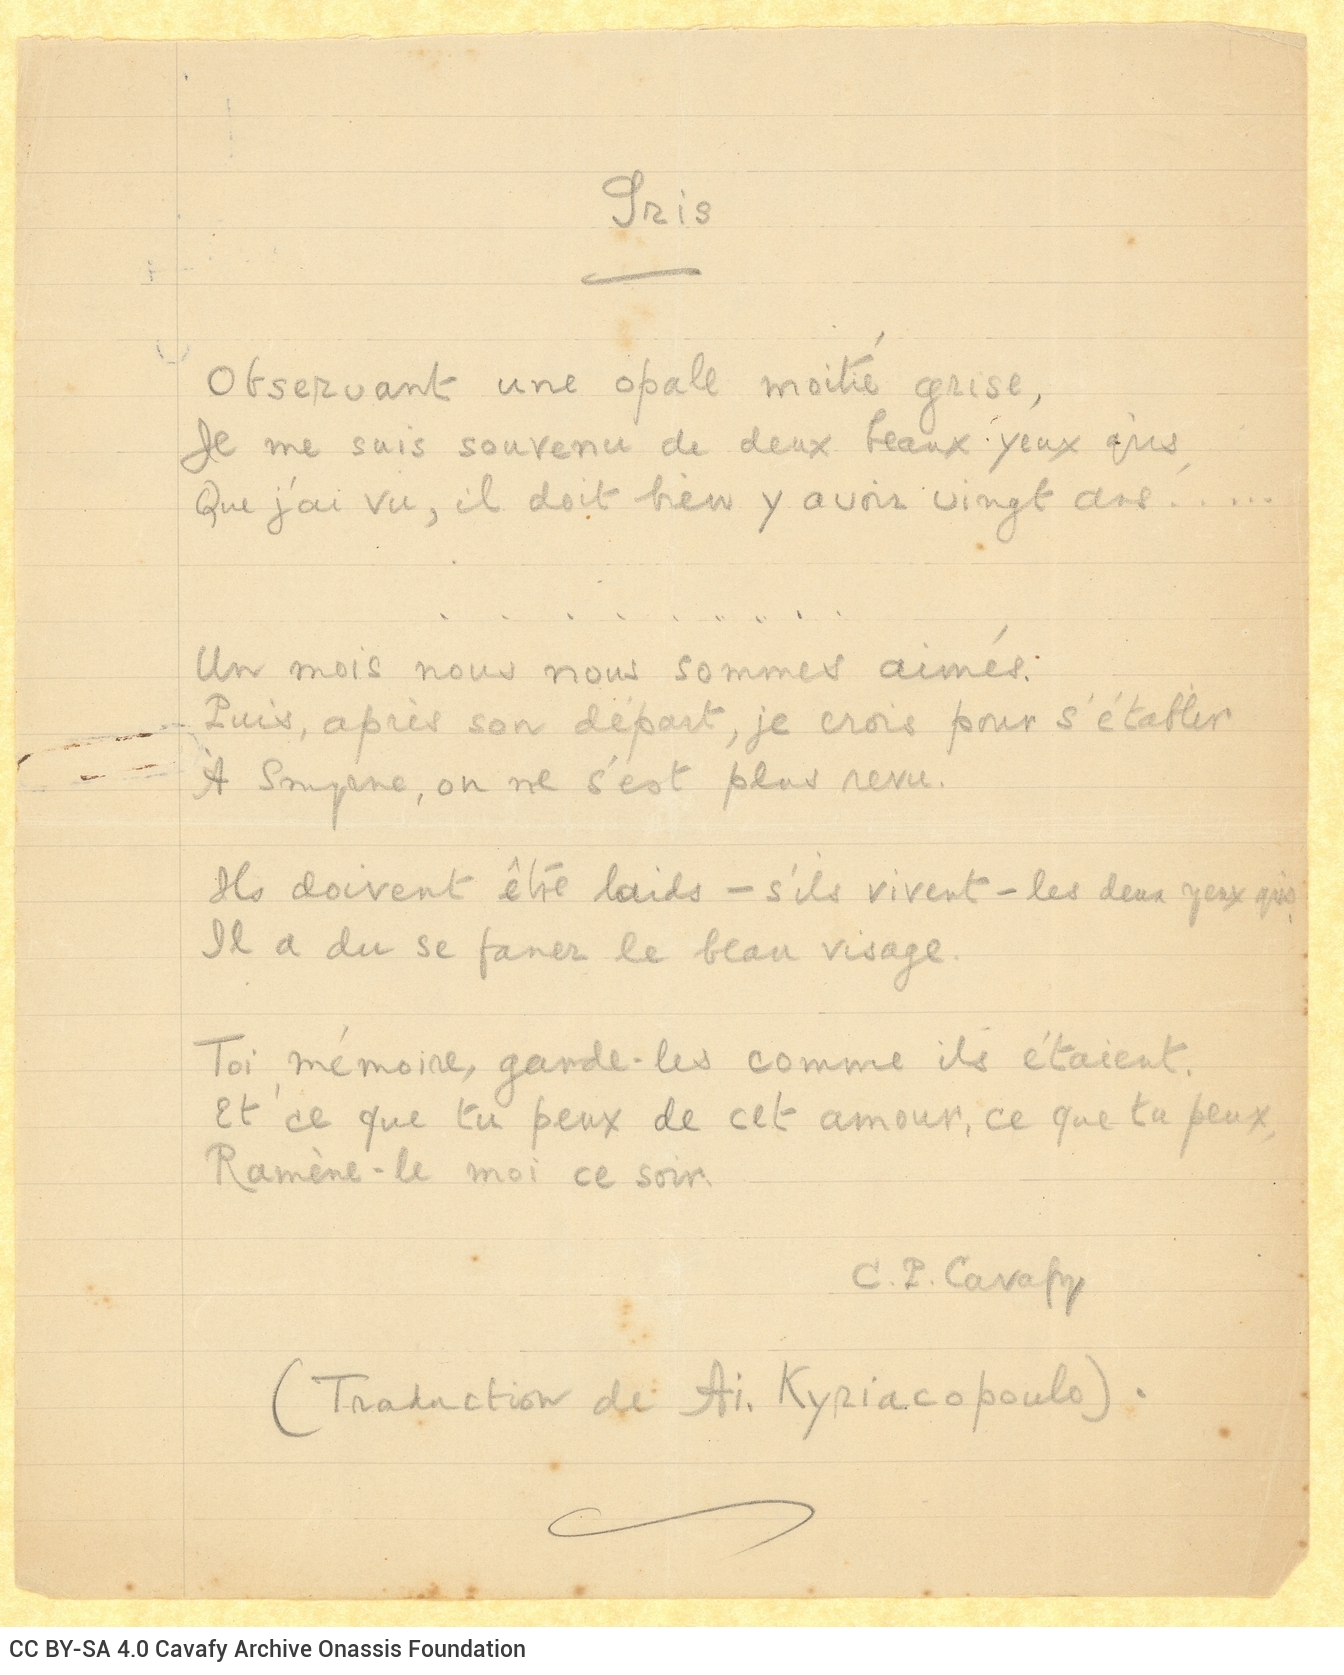 Gris
Observant une opale moitié grise,
Je me suis souvenu de deux beaux yeux gris
Que j'ai vu, il doit bien y avoir vingt ans......
. . . . . . . . .
Un mois nous nous sommes aimés.
Puis, après son départ, je crois pour s'établir
À Smyrne, on ne s'est plus revu.
Ils doivent être laids – s'ils vivent – les deux yeux gris
Il a du se faner le beau visage.
Toi, mémoire, garde-les comme ils étaient.
Et ce que tu peux de cet amour, ce que tu peux,
Ramène-le moi ce soir.
C. P. Cavafy
(Traduction de Ai. Kyriacopoulo).
CC BY-SA 4.0 Cavafy Archive Onassis Foundation